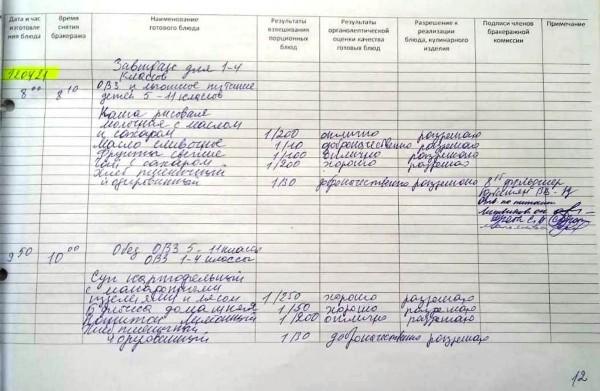 Дата и час изготовления блюда
Время снятия бракеража
Наименование готового блюда
Результаты взвешивания порционных блюд
Результаты органолептической оценки качества готовых блюд
Разрешение к реализации блюда, кулинарного изделия
Подписи членов бракеражной комиссии
Примечание
120421
Завтрак для 1-4
классов
8 00 8 10 ОВЗ и льготное питание
детей 5-11 классов
Каша рисовая
молочная с маслом
и сахаром 1/200 отлично разрешаю
Масло сливочное 1/10 доброкачественно разрешаю
Фрукты свежие 1/100 отлично разрешаю
Чай с сахаром 1/200 хорошо разрешаю
Хлеб пшеничный
йодированный 1/30 доброкачественно разрешаю 8 15 фельдшер
Отв. по питанию
9 50 10 00 Обед ОВЗ 5-11 классы
ОВЗ 1-4 классы
Суп картофельный
с макаронными
изделиями и мясом 1/250 хорошо разрешаю
домашняя 1/50 хорошо разрешаю
Напиток лимонный 1/200 отлично разрешаю
Хлеб пшеничный
йодированный 1/30 доброкачественно разрешаю
12